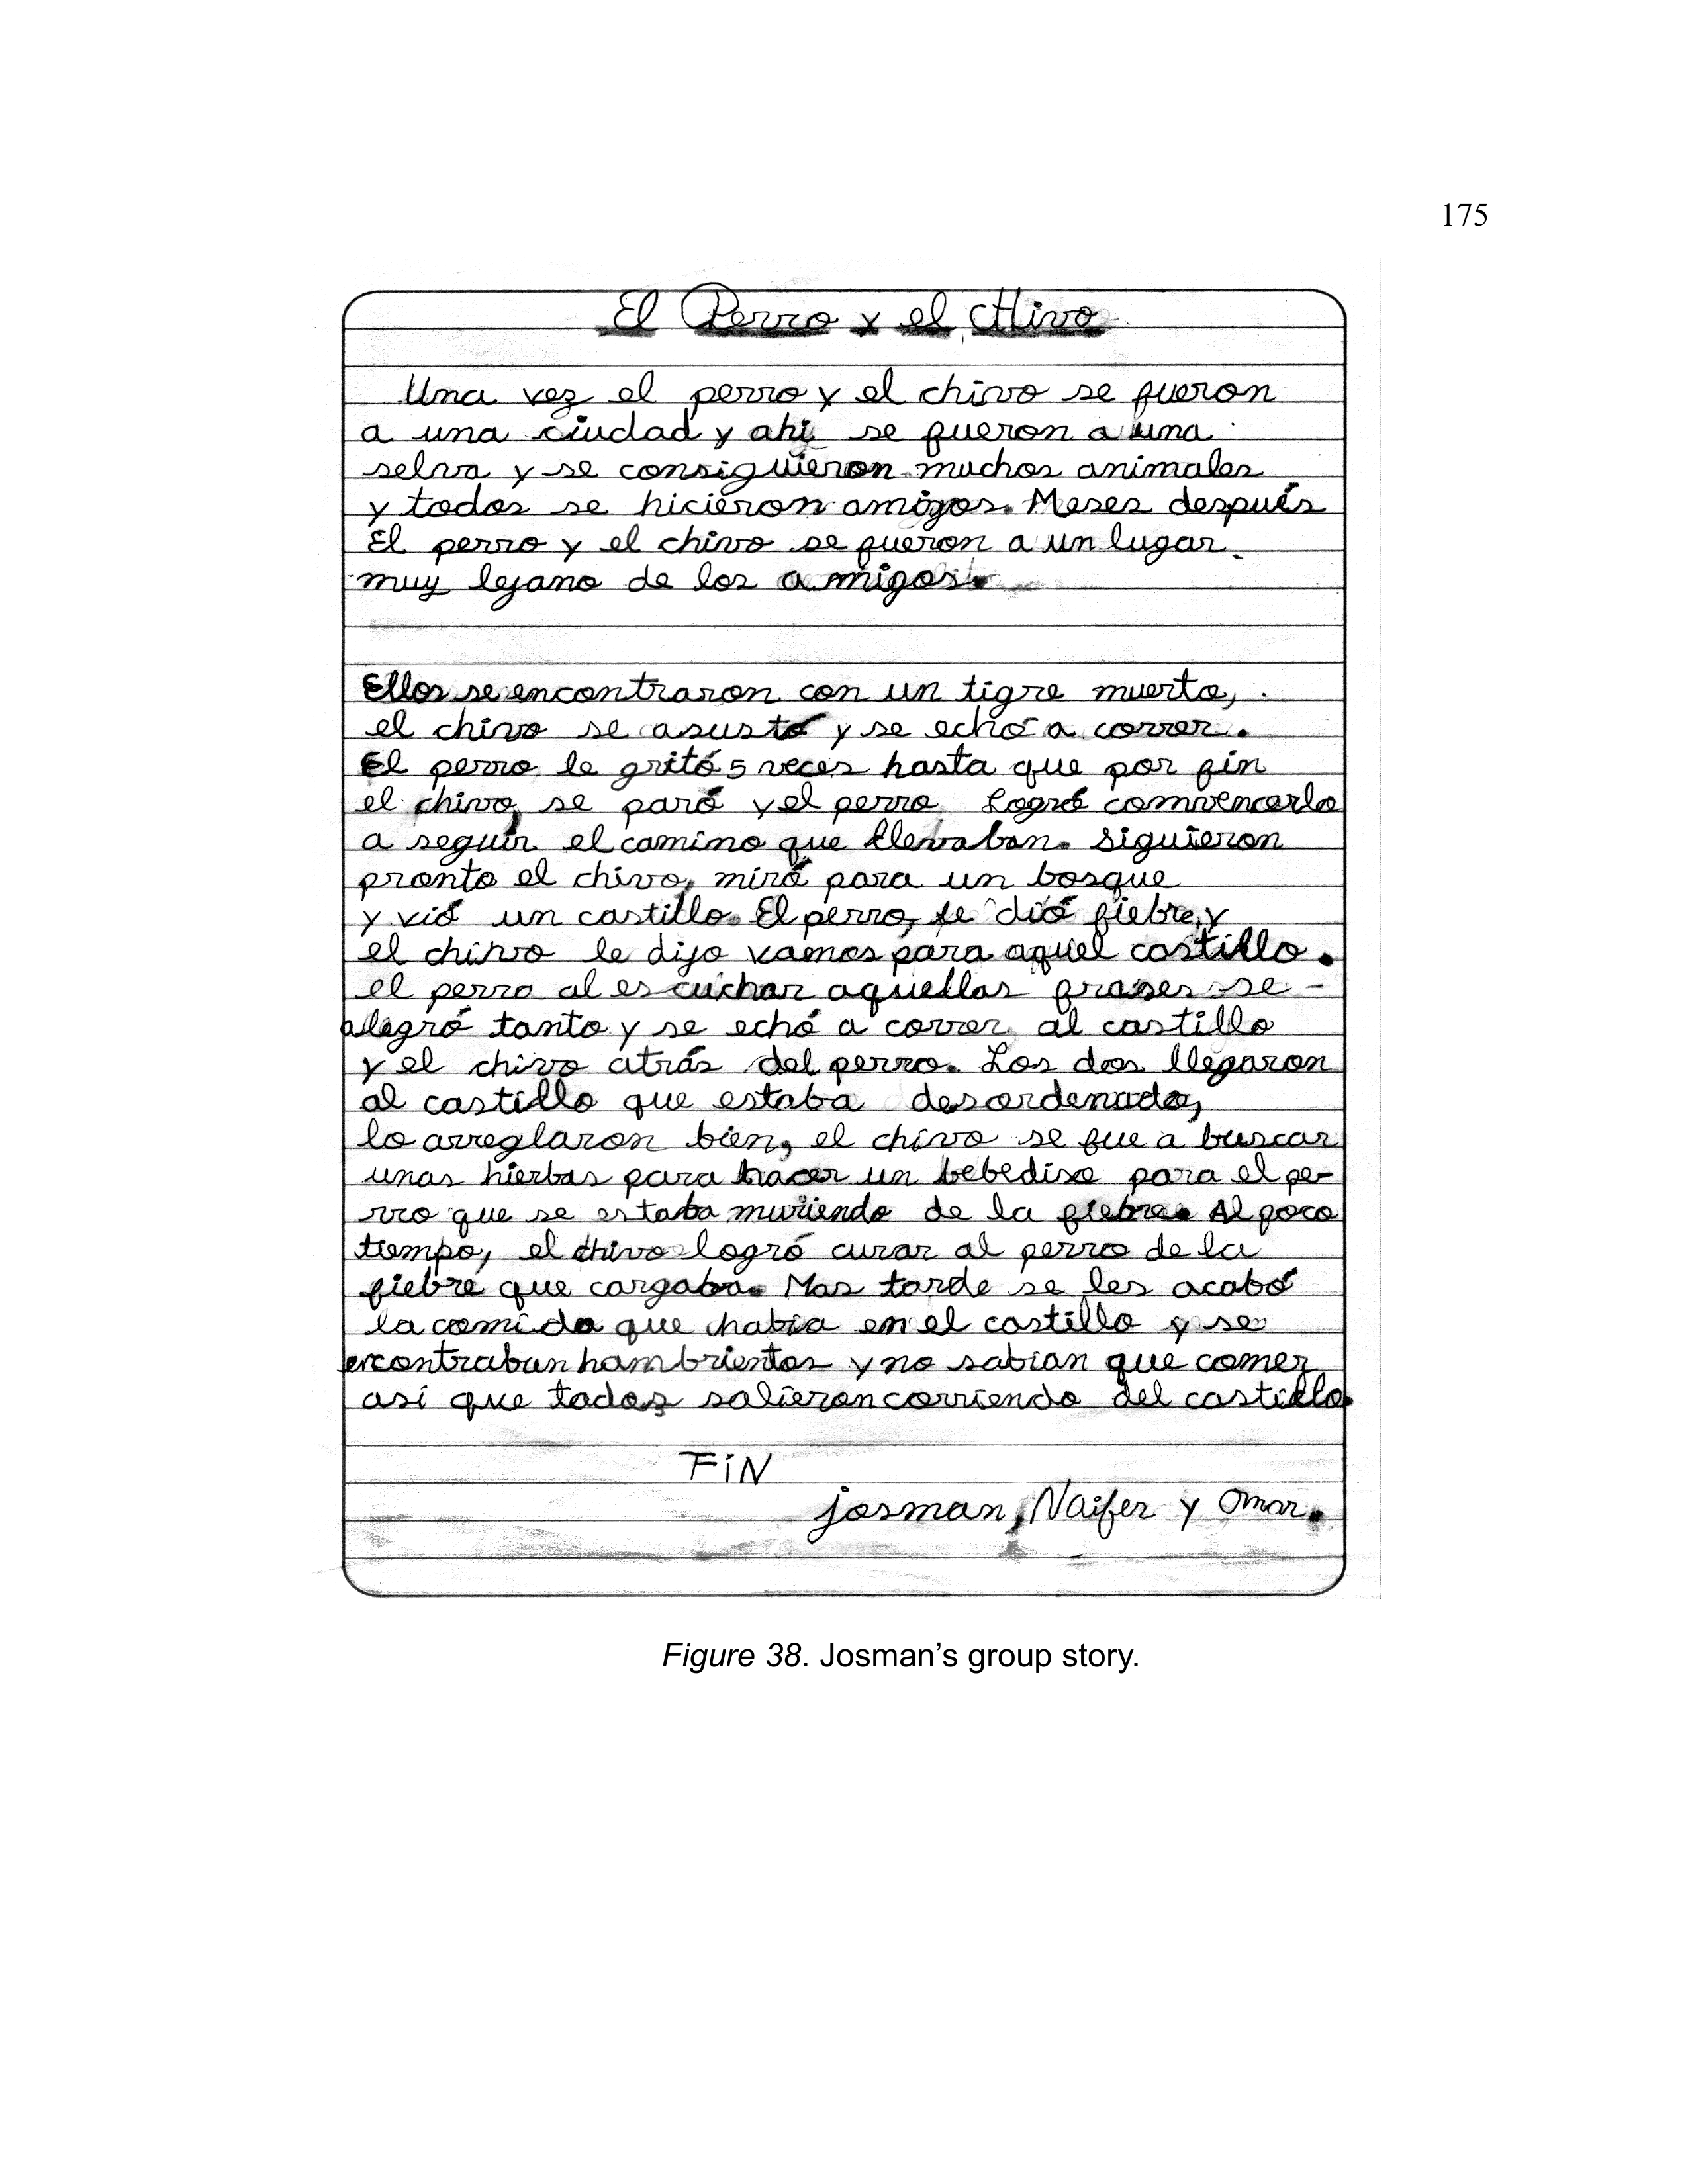 175
El Perro y el Chivo
Una vez el perro y el chivo se fueron
a una ciudad y ahi se fueron a una
selva y se consiguieron muchos animales
y todos se hicieron amigos. Meses después
El perro y el chivo se fueron a un lugar
muy lejano de los amigos.
Ellos se encontraron con un tigre muerto,
el chivo se asustó y se echó a correr.
El perro le gritó 5 veces hasta que por fin
el chivo, se paró y el perro Logró comvencerlo
a seguir el camino que llevaban. Siguieron
pronto el chivo, miró para un bosque
y vió un castillo. El perro, le dió fiebre, y
el chivo le dijo vamos para aquel castillo.
el perro al escuchar aquellas frases se -
alegró tanto y se echó a correr al castillo
y el chivo atrás del perro. Los dos llegaron
al castillo que estaba desordenado,
lo arreglaron bien, el chivo se fue a buscar
unas hierbas para hacer un bebediso para el pe-
rro que se estaba muriendo de la fiebre. Al poco
tiempo, el chivo logró curar al perro de la
fiebre que cargaba. Mas tarde se les acabó
la comida que habia en el castillo y se
encontraban hambrientos y no sabian que comer
así que todos salieron corriendo del castillo.
FiN
josman, Naifer y Omar.
Figure 38. Josman's group story.